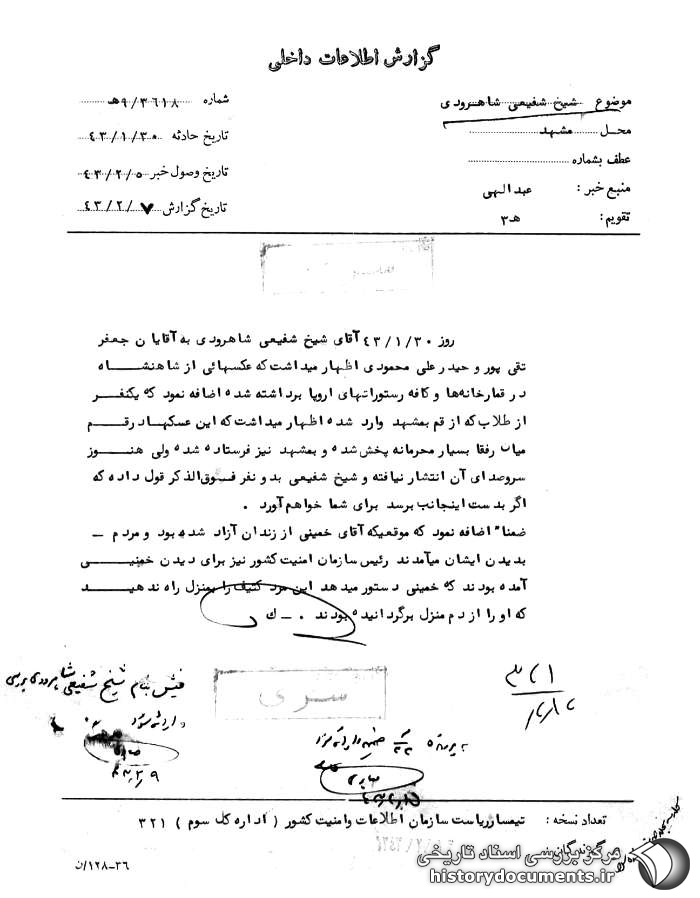 گزارش اطلاعات داخلی
موضوع شیخ شفیعی شاهرودی
شماره ۹/۳۶۱۸هـ
محل مشهد
تاریخ حادثه ۴۳/۱/۳۰
عطف بشماره
تاریخ وصول خبر ۴۳/۲/۵
منبع خبر : عبدالهی
تاریخ گزارش ۴۳/۲/۷
تقویم : هـ۳
روز ۴۳/۱/۳۰ آقای شیخ شفیعی شاهرودی به آقایان جعفر
تقی پور و حیدرعلی محمودی اظهار میداشت که عکسهائی از شاهنشاه
در قمارخانه‌ها و کافه رستورانهای اروپا برداشته شده اضافه نمود که یکنفر
از طلاب که از قم بمشهد وارد شده اظهار میداشت که این عسکهاد رقم
میان رفقا بسیار محرمانه پخش شده و بمشهد نیز فرستاده شده ولی هنوز
سروصدای آن انتشار نیافته و شیخ شفیعی بدو نفر فوق‌الذکر قول داده که
اگر بدست اینجانب برسد برای شما خواهم آورد .
ضمناً اضافه نمود که موقعیکه آقای خمینی از زندان آزاد شده بود و مردم –
بدیدن ایشان میآمدند رئیس سازمان امنیت کشور نیز برای دیدن خمینی
آمده بودند که خمینی دستور میدهد این مرد کثیف را بمنزل راه ندهید
که او را از دم منزل برگردانیده بودند . – ك
سری
فیش بنام شیخ شفیعی شاهرودی بررسی
۳۲۱
تعداد نسخه : تیمسار ریاست سازمان اطلاعات وامنیت کشور ( اداره کل سوم ) ۳۲۱
۱۲۸-۳۶/ن
مرکز بررسی اسناد تاریخی
historydocuments.ir